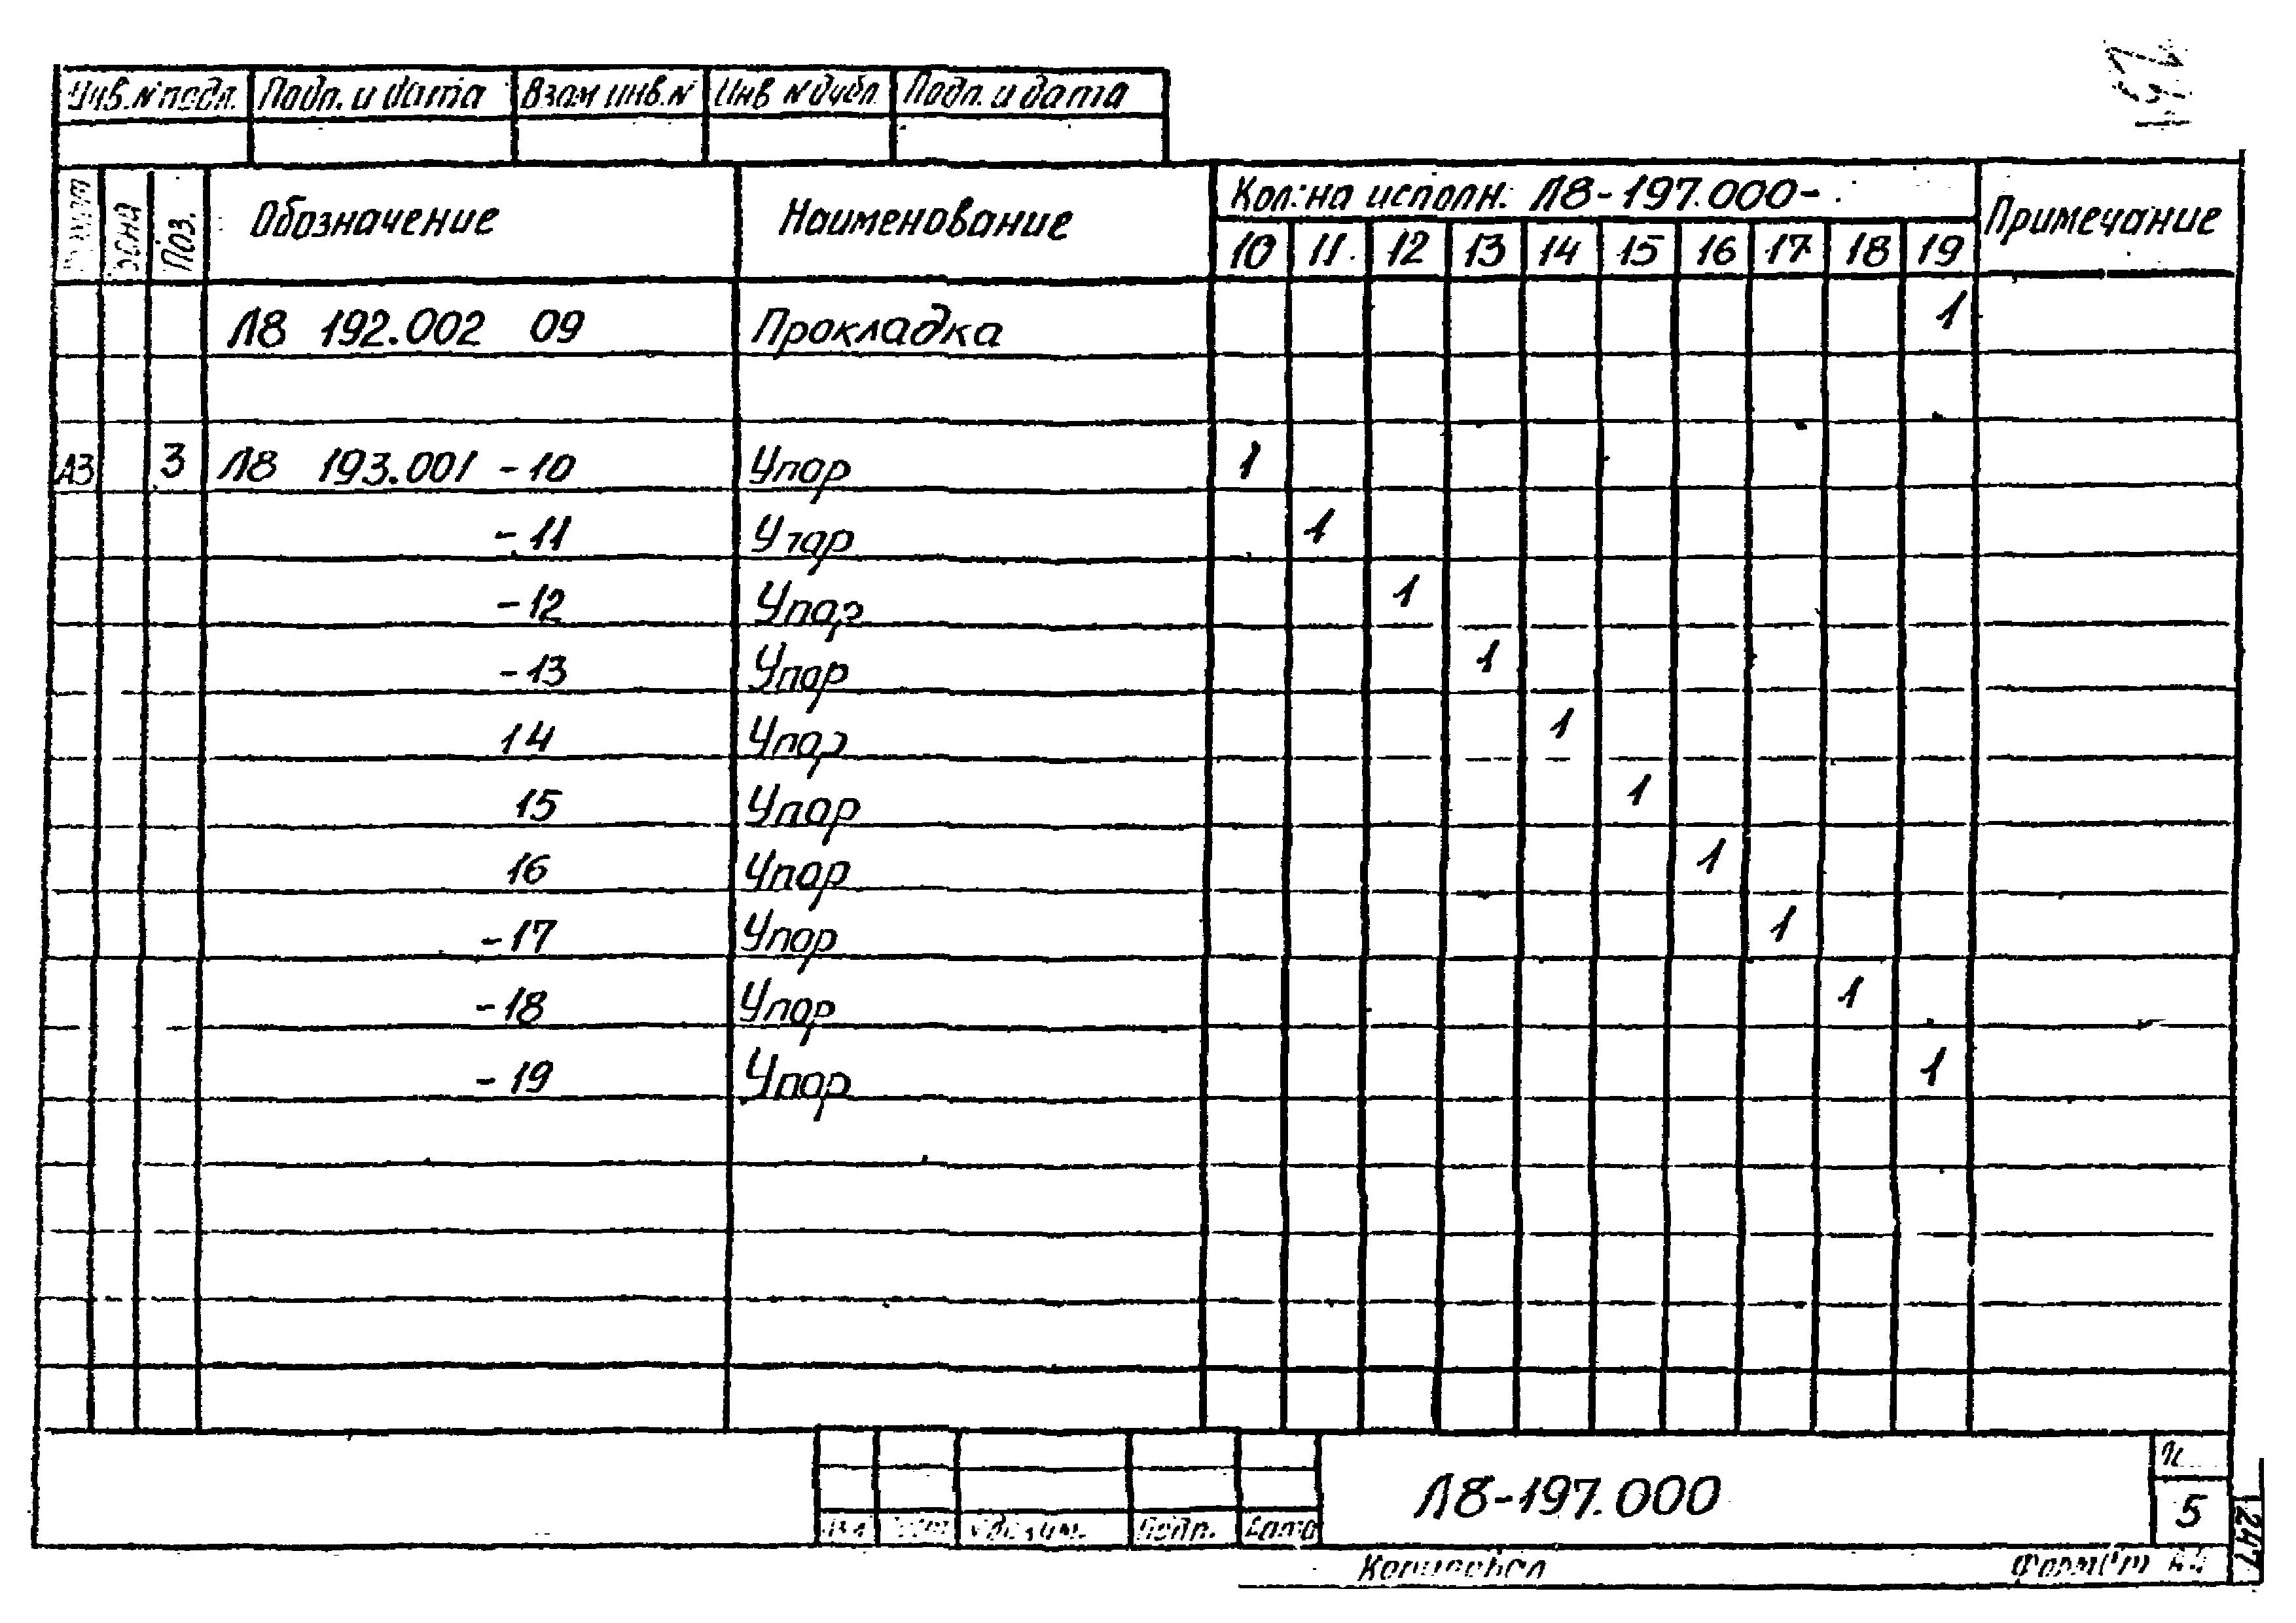 Инв.№подл. Подп. и дата Взам инв.№ Инв №дубл Подп. и дата
Зона Поз. Обозначение Наименование Кол. на исполн. Л8-197.000- Примечание
10 11 12 13 14 15 16 17 18 19
Л8 192.002 09 Прокладка 1
А3 3 Л8 193.001 -10 Упор 1
-11 Упор 1
-12 Упор 1
-13 Упор 1
14 Упор 1
15 Упор 1
16 Упор 1
-17 Упор 1
-18 Упор 1
-19 Упор 1
Л8-197.000
5
Подп. Дата
Копировал Формат А4
1247